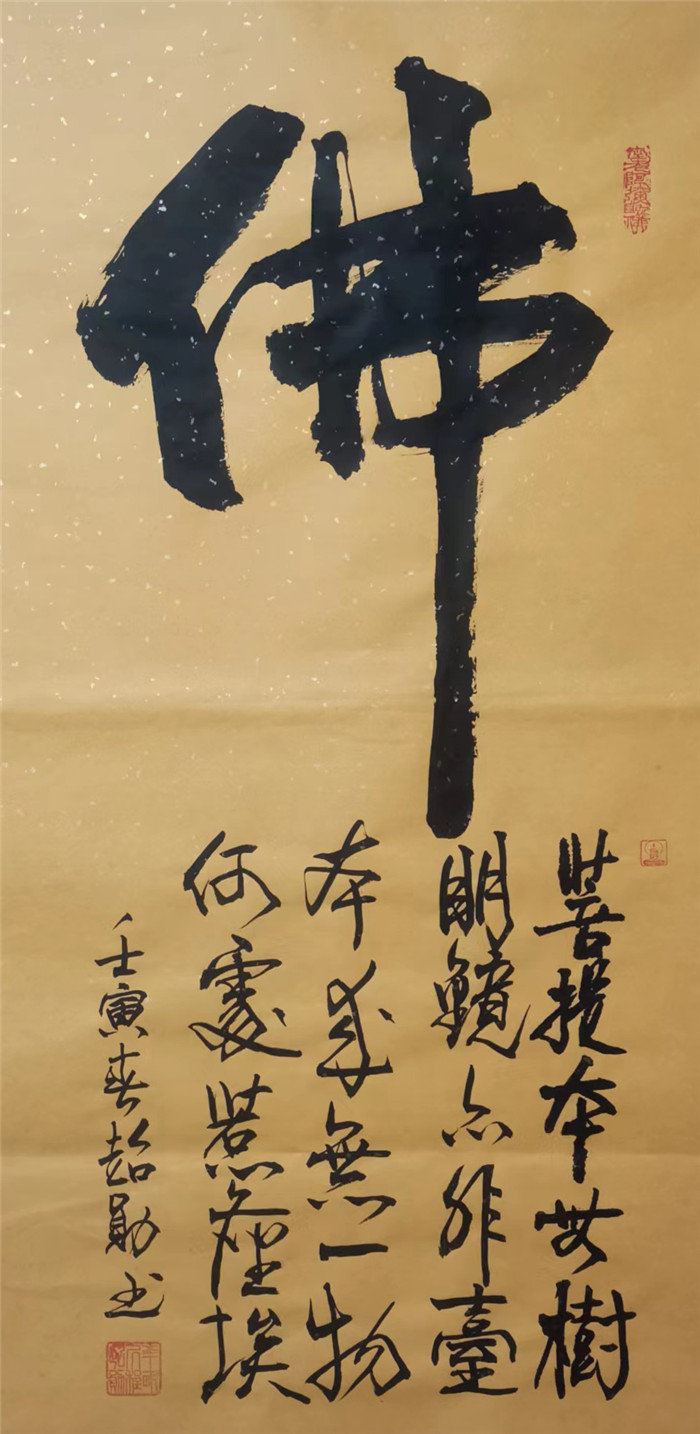 佛
菩提本無樹
明鏡亦非臺
本來無一物
何處惹塵埃
壬寅春超勛书